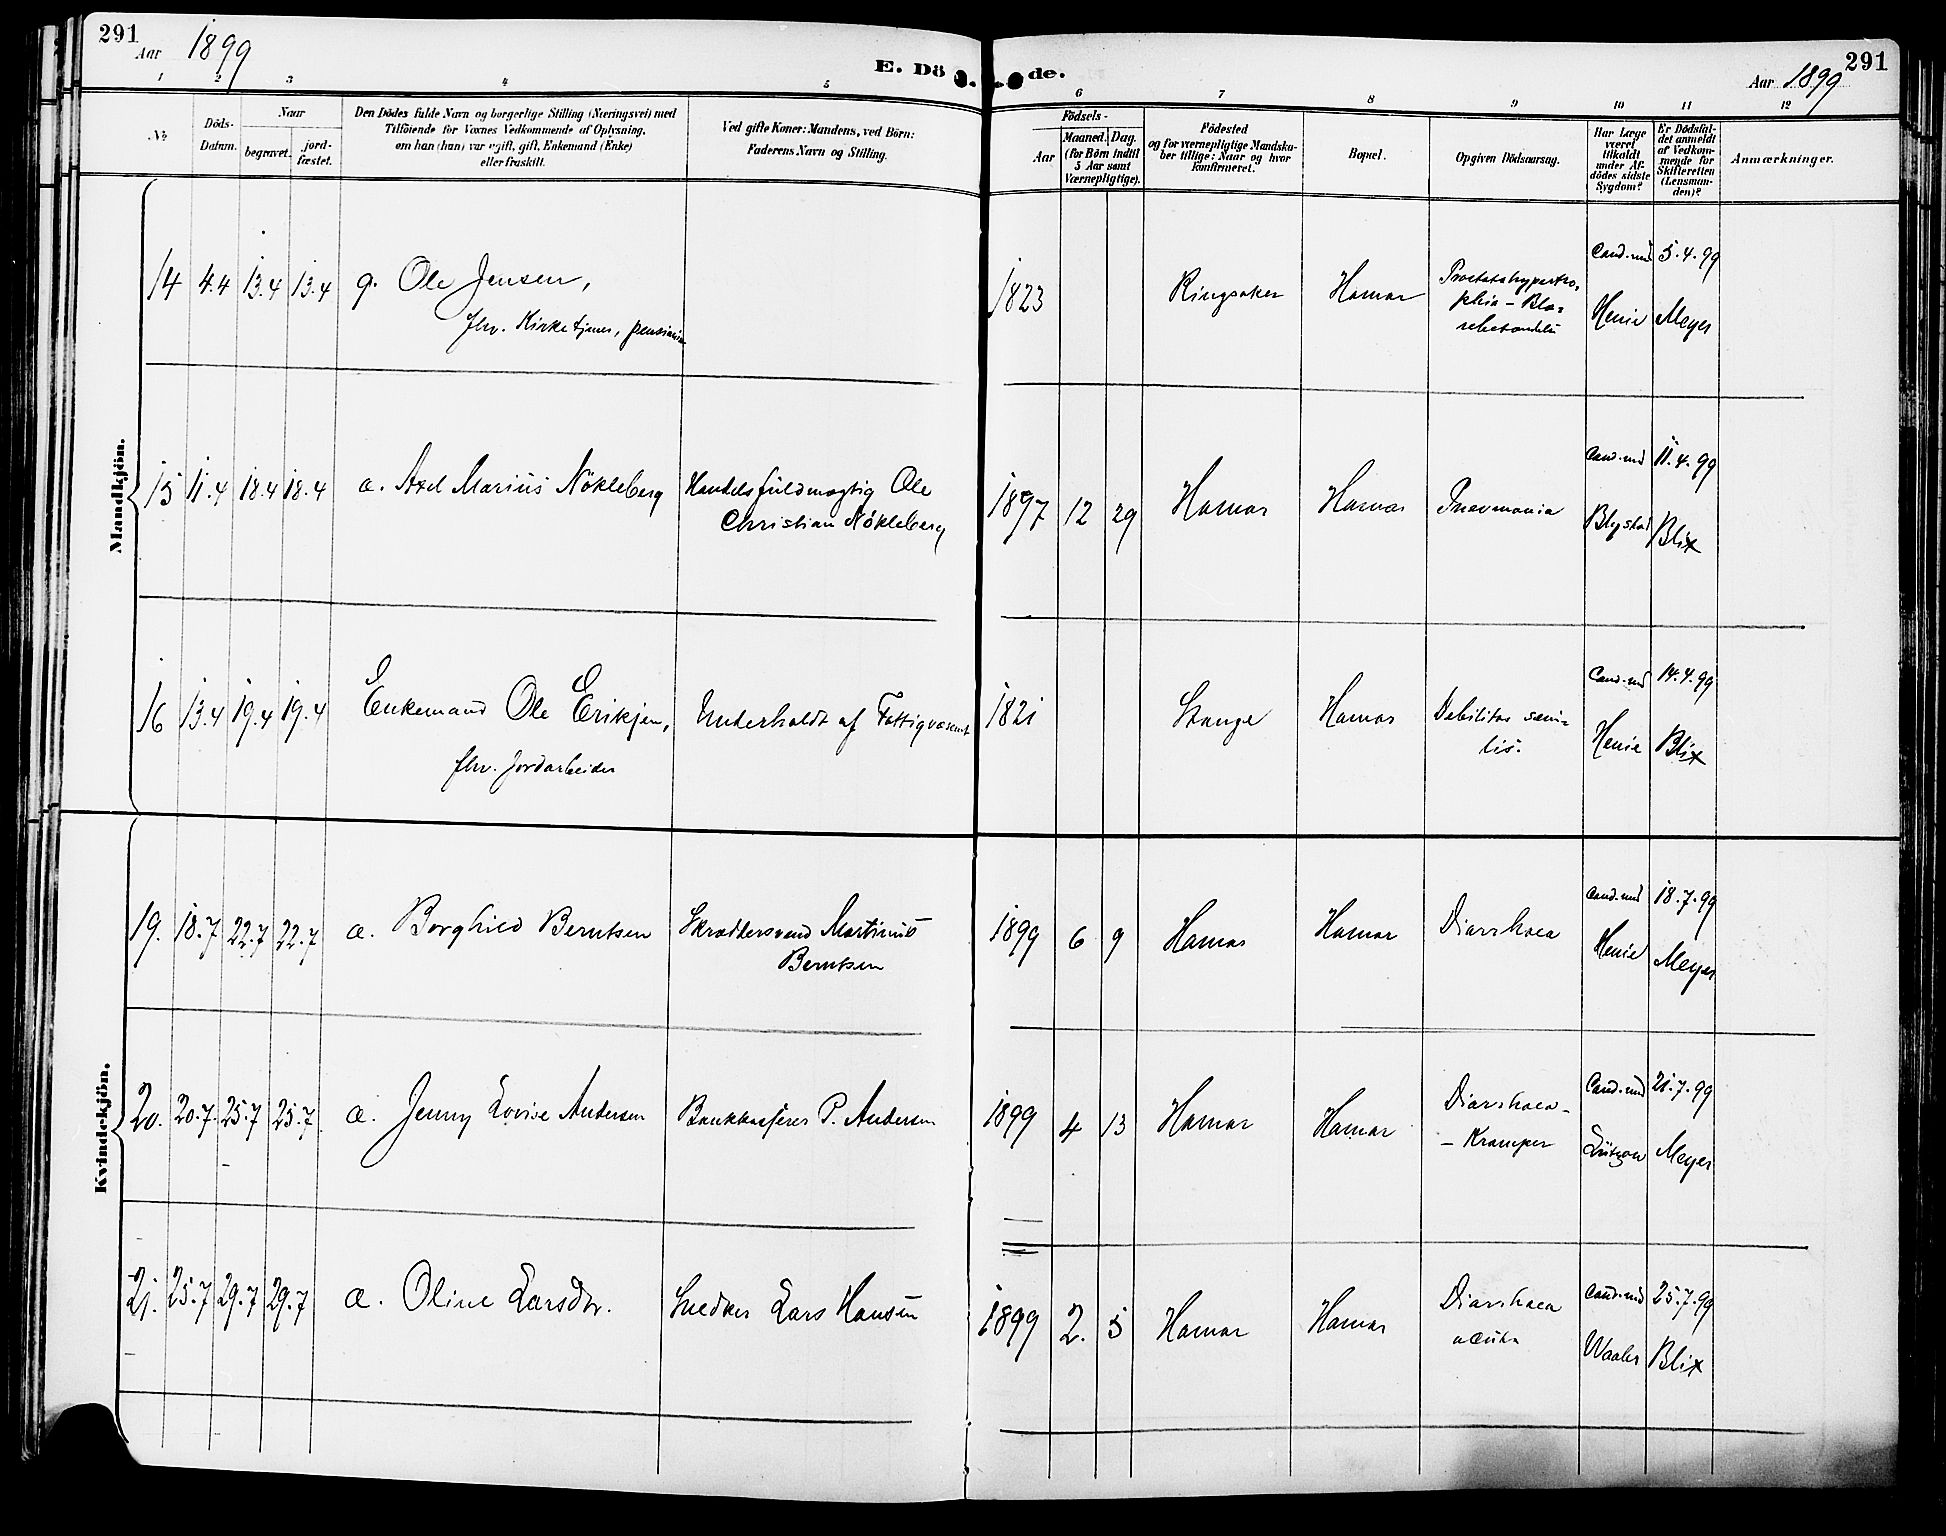 291
Aar 1899
E. Dö
de.
Aar 1899
291
1 2 3 4 5 6 7 8 9 10 11 12
No
Döds-
Datum.
Naar
begravet.
jord-
fæstet.
Den Dödes fulde Navn og borgerlige Stilling (Næringsvei) med
Tilföiende for Voxnes Vedkommende af Oplysning,
om han (hun) var ugift, gift, Enkemand (Enke)
eller fraskilt.
Ved gifte Koner: Mandens, ved Börn:
Faderens Navn og Stilling.
Födsels-
Aar
Maaned. Dag.
(for Börn indtil
5 Aar samt
Værnepligtige).
Födested
og for værnepligtige Mandska-
ber tillige: Naar og hvor
konfirmeret.
Bopæl.
Opgiven Dödsaarsag.
Har Læge
været
tilkaldt
under Af-
dödes sidste
Sygdom?
Er Dödsfal-
det anmeldt
af Vedkom-
mende for
Skifteretten
(Lensman-
den)?
Anmærkninger.
Mandkjön.
14 4.4 13.4 13.4 g. Ole Jensen,
fhv. Kirketjener,
1823 Ringsaker Hamar
Prostatahypertro-
phia - Blæ-
Cand. med
Henie
5.4.99
Meyer
15 11.4 18.4 18.4 a. Axel Marius Nökleberg
Handelsfuldmægtig Ole
Christian Nökleberg
1897 12 29 Hamar Hamar Pnevmonia
Cand. med
Blystad
11.4.99
Blix
16 13.4 19.4 19.4 Enkemand Ole Eriksen,
fhv. Jordarbeider
Underholdt af Fattigvæsenet
1821 Stange Hamar
Debilitas seni-
lis.
Cand. med
Henie
14.4.99
Blix
Kvindekjön.
19. 18.7 22.7 22.7 a. Borghild Berntsen
Skræddersvend Martinius
Berntsen
1899 6 9 Hamar Hamar Diarrhoea
Cand. med
Henie
18.7.99
Meyer
20. 20.7 25.7 25.7 a. Jenny Lovise Andersen
Bankkasserer P. Andersen
1899 4 13 Hamar Hamar
Diarrhoea-
- Kramper
Cand. med
21.7.99
Meyer
21. 25.7 29.7 29.7 a. Oline Larsdtr.
Snedker Lars Hansen
1899 2. 5 Hamar Hamar
Diarrhoea
acuta
Cand. med
Waaler
25.7.99
Blix